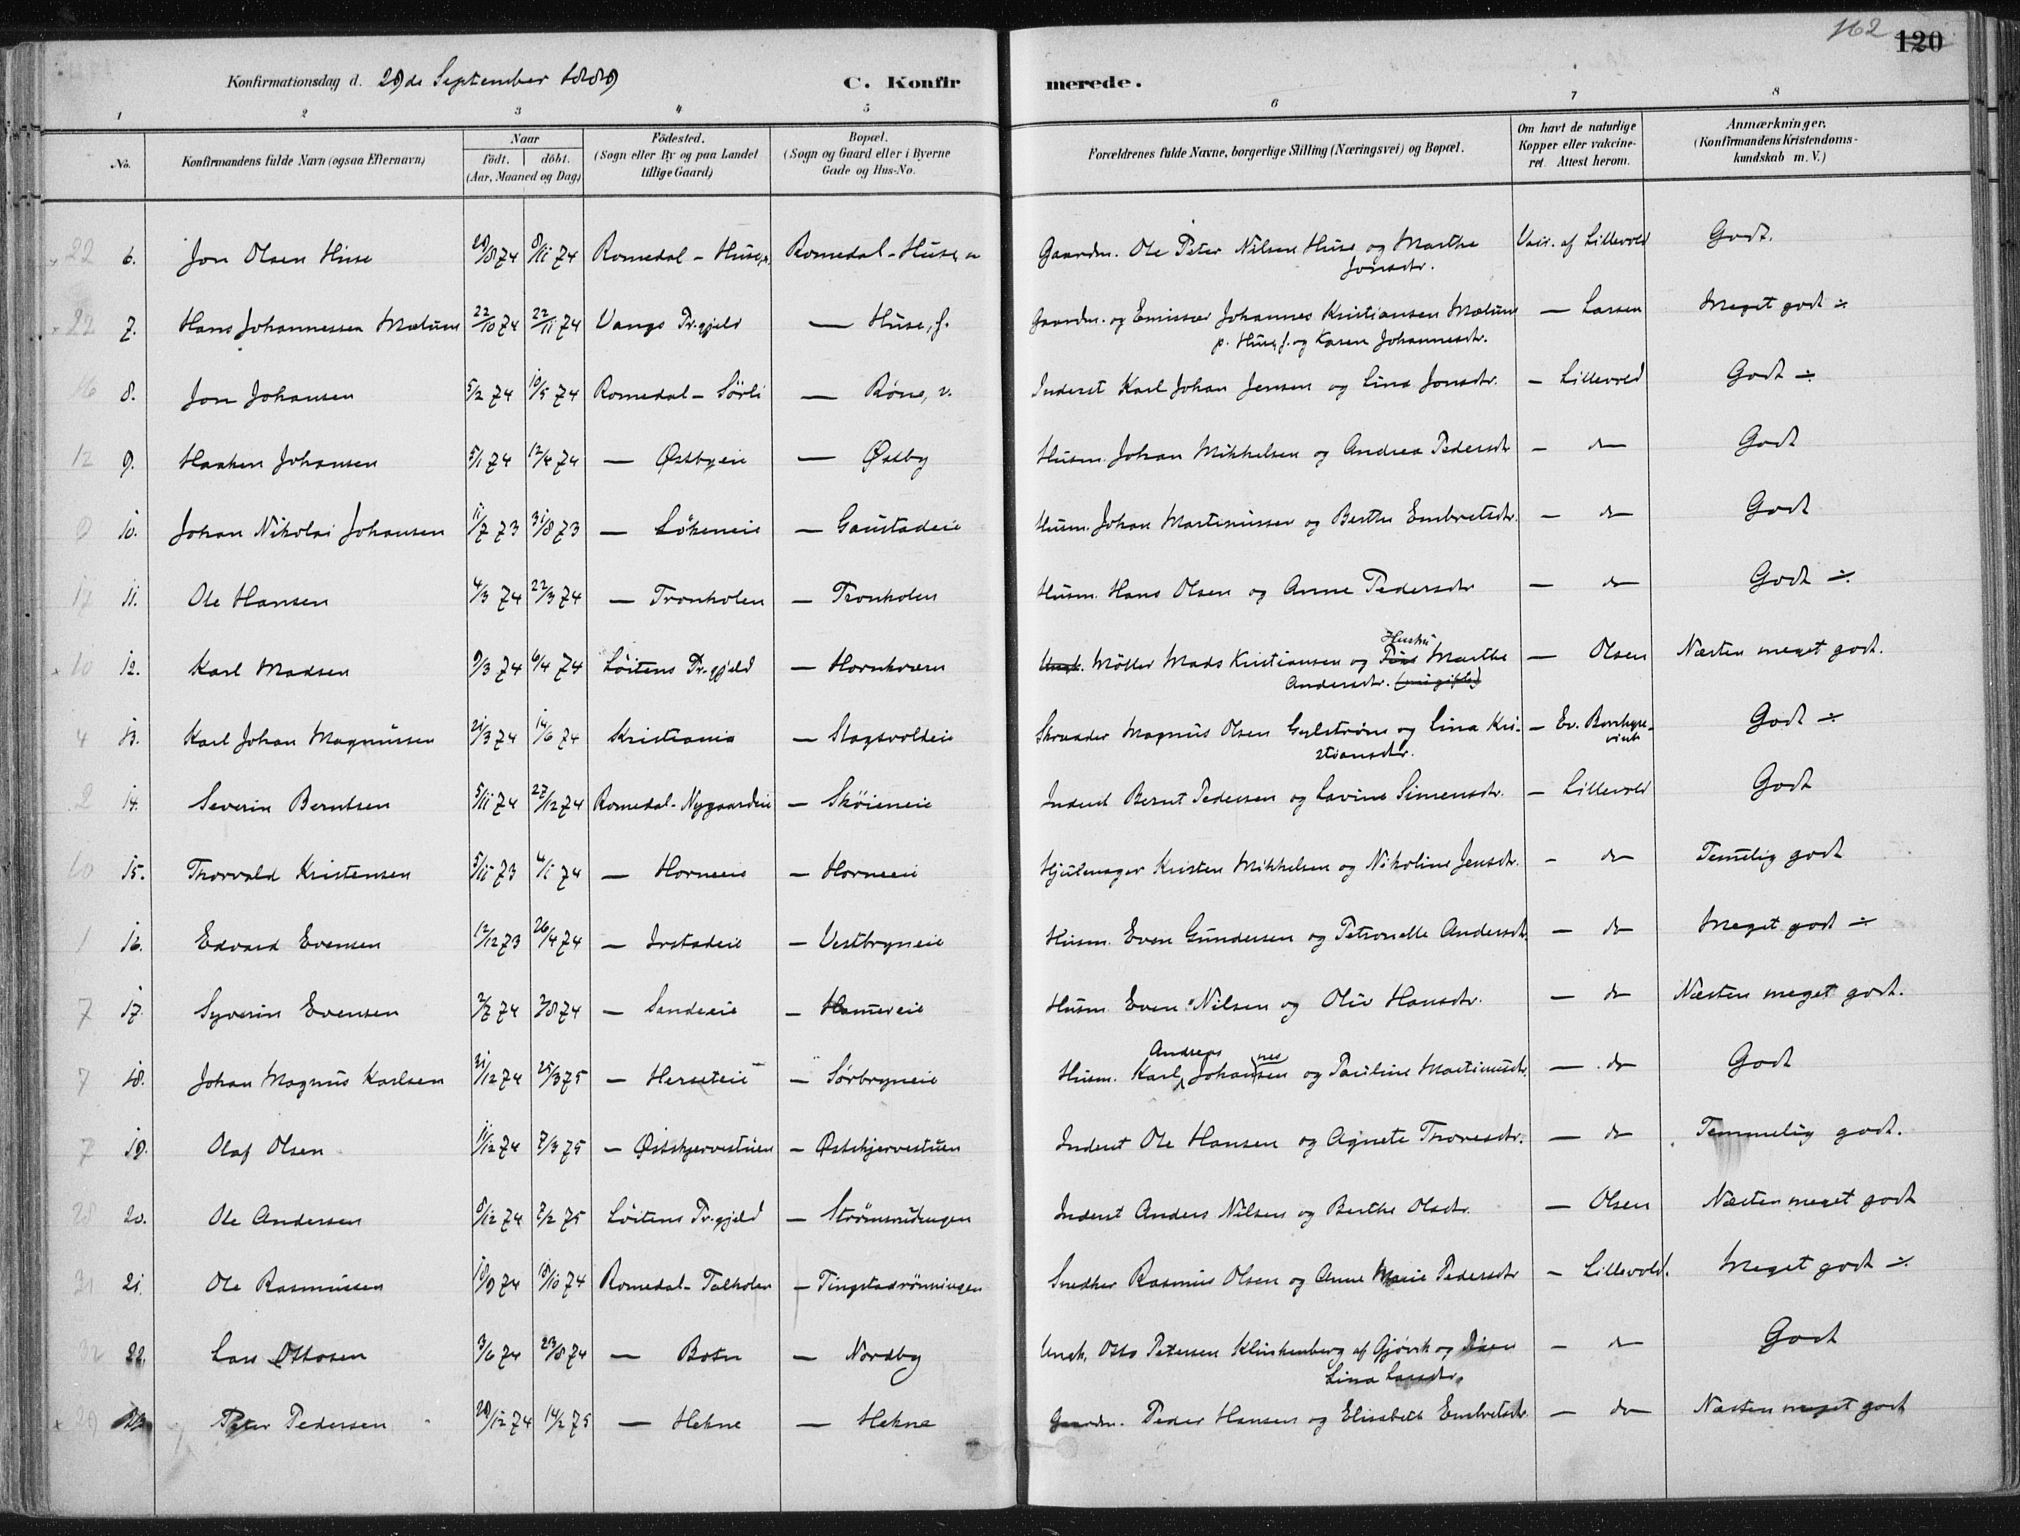 162 120
Konfirmationsdag d. 29de September 1889 C. Konfirmerede.
1 2 3 4 5 6 7 8
No. Konfirmandens fulde Navn (ogsaa Efternavn) Naar födt. döbt. (Aar, Maaned og Dag) Födested. (Sogn eller By og paa Landet tillige Gaard) Bopæl. (Sogn og Gaard eller i Byerne Gade og Hus-No. Forældrenes fulde Navne, borgerlige Stilling (Næringsvei) og Bopæl. Om havt de naturlige Kopper eller vakcineret. Attest herom. Anmærkninger. (Konfirmandens Kristendomskundskab m. V.)
22 6. Jon Olsen Huse 29/8 74 8/11 74 Romedal – Huse, n. Romedal – Huse, n Gaardm. Ole Peter Nilsen Huse og Marthe Jonsdtr. Vaic. af Lillevold Godt.
22 7. Hans Johannessen Mælum 22/10 74 22/11 74 Vangs Pr.gjeld — Huse, f. Gaardm. og Emissær Johannes Kristiansen Mælum p. Huse, f. og Karen Johannesdtr. — Larsen Meget godt ÷
16 8. Jon Johansen 5/2 74 10/5 74 Romedal – Sörli — Röne, v. Inderst Karl Johan Jensen og Lina Jonsdtr. — Lillevold Godt ÷
12 9. Haaken Johansen 5/1 74 12/4 74 — Østbyeie — Østby Husm. Johan Mikkelsen og Andrea Pedersdtr — do Godt
9 10. Johan Nikolai Johansen 11/7 73 31/8 73 — Lökeneie — Gaustadeie Husm. Johan Martinussen og Berthe Embretsdtr. — do Godt
17 11. Ole Hansen 4/3 74 22/3 74 — Tronholen — Tronholen Husm. Hans Olsen og Anne Pedersdtr — do Godt ÷
10 12. Karl Madsen 9/3 74 6/4 74 Löitens Pr.gjeld — Hornkværn Ungk. Möller Mads Kristiansen og Hustru Pige Marthe Andersdtr. (ugifte) — Olsen Næsten meget godt.
4 13. Karl Johan Magnussen 21/3 74 14/6 74 Kristiania — Slagsvoldeie Skræder Magnus Olsen Gylström og Lina Kristiansdtr. — Godt ÷
2 14. Severin Berntsen 5/11 74 27/12 74 Romedal – Nygaardeie — Sköieneie Inderst Bernt Pedersen og Lavine Simensdtr. — Lillevold Godt
10 15. Thorvald Kristensen 5/11 73 4/1 74 — Horneeie — Horneeie Hjulmager Kristen Mikkelsen og Nikoline Jensdtr. — do Temmelig godt
1 16. Edvard Evensen 12/12 73 26/4 74 — Irstadeie — Vestbryneie Husm. Even Gundersen og Petronelle Andersdt. — do Meget godt ÷
7 17. Syverin Evensen 2/7 74 2/8 74 — Sandeeie — Husm. Even Nilsen og Oliv Hansdtr. — do Næsten meget godt.
7 18. Johan Magnus Karlsen 31/12 74 25/3 75 — Herseteie — Sörbryneie Husm. Karl Andreas Johansen nes og Pauline Martinusdt. — do Godt
7 19. Olaf Olsen 11/12 74 7/3 75 — Østskjervestuen — Østskjervestuen Inderst Ole Hansen og Agnete Thoresdtr. — do Temmelig godt.
28 20. Ole Andersen 8/12 74 7/2 75 Löitens Pr.gjeld — Inderst Anders Nilsen og Berthe Olsdtr. — Olsen Næsten meget godt
31 21. Ole Rasmussen 10/9 74 18/10 74 Romedal – Talholen — Tingstadrönningen Snedker Rasmus Olsen og Anne Marie Pedersdtr — Lillevold. Meget godt ÷
32 22. Lars Ottosen 3/6 74 23/8 74 — Botn — Nordby Ungk. Otto Petersen Klinkenberg af Gjövik og Pigen Lina Larsdtr. — do Godt
29 23. Peter Pedersen 29/12 74 14/2 75 — Hekne — Hekne Gaardm. Peder Hansen og Elisabeth Embretsdt. — do Næsten meget godt